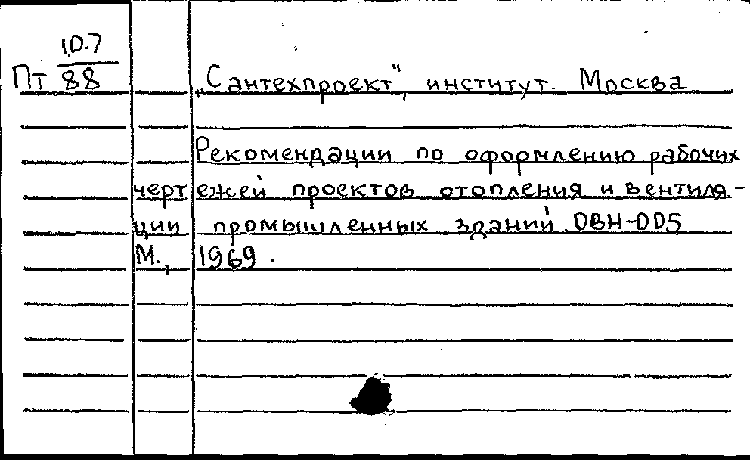 10.7
Пт 88
„Сантехпроект", институт. Москва
Рекомендации по оформлению рабочих
чертежей проектов отопления и вентиля-
ции промышленных зданий ОВН-005
М., 1969.